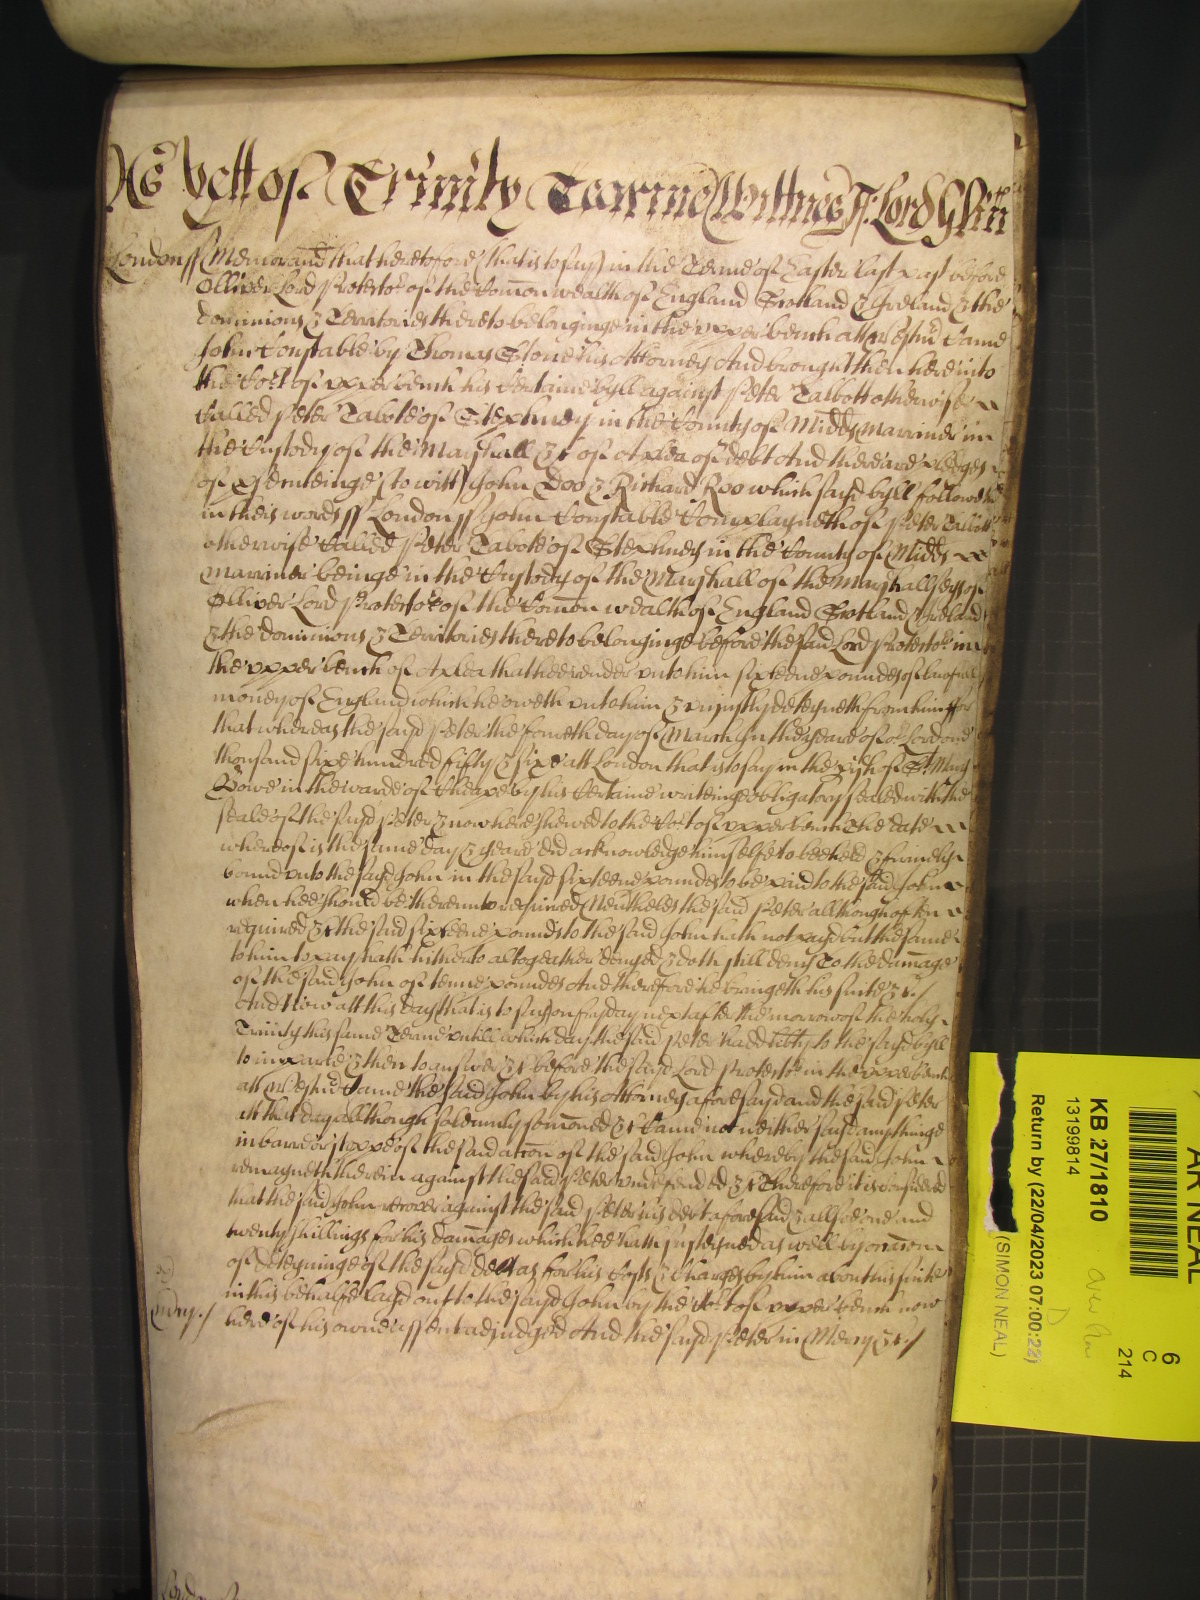 As yett of Trinity Tearme Wittnes J: Lord Glin
London ss Memorand that heretofore (that is to say) in the Terme of Easter last past before
Olliver Lord Protector of the Comon wealth of England Scotland & Ireland & the
dominions & Territories thereto belonginge in the vpper bench att Westmr Came
John Constable by Thomas Stone his Attorney And brought then here into
the Cort of vpper bench his Certaine byll against Peter Talbott otherwise
Called Peter Tabote of Stephney in the County of Midds Marriner in
the Custody of the Marshall &c of A plea of debt And there are pledges
of prosecuteinge (to witt) John Doo & Richard Roo which sayd byll followeth
in theis words ss London ss John Constable Complayneth of Peter Talbott
otherwise Called Peter Tabote of Stephney in the County of Midds
Marriner beinge in the Custody of the Marshall of the Marshallseys of
Olliver Lord Protector of the Comon wealth of England Scotland Ireland
& the dominions & Territories thereto belonginge before the said Lord Protector in
the vpper bench of A plea that hee render vnto him sixteene poundes of lawfull
money of England which he oweth vnto him & vniustly deteyneth from him ffor
that whereas the sayd Peter the fowerth day of March In the yeare of or Lord one
thousand sixe hundred fifty & sixe att London that is to say in the pish of St Mary
Bowe in the warde of Cheape by his Certaine writeinge obligatory sealed with the
seale of the sayd Peter & now here shewed to the Cort of vpper bench the date
whereof is the same day & yeare did acknowledge himselfe to bee held & firmely
bound vnto the sayd John in the sayd sixteene poundes to be paid to the said John
when hee should be therevnto required Neutheles the said Peter allthough often
required &c the said sixteene pounds to the said John hath not payd but the same
to him to pay hath hitherto altogeather denyed & doth still deny To the damage
of the said John of tenne poundes And therefore he bringeth his suite &c ./
And Now att this day that is to say on fryday next after the morrow of the holy
Trinity this same Terme vntill which day the said Peter hadd libty to the sayd byll
to imparle & then to answer &c before the sayd Lord Protector in the vpper bench
att Westmr Came the said John by his Attorney aforesayd and the said Peter
att that day allthough solemnly somoned &c Came not neither sayd any thinge
in barre or stoppe of the said accon of the said John whereby the said John
remayneth therein against the said Peter vndefended &c Therefore it is considered
that the said John recover against the said Peter his debt aforesaid & allsoe one and
twenty shillings for his damages which hee hath susteyned as well by occasion
of deteyninge of the sayd debt as for his Costs & Charges by him about his suite
in this behalfe layd out to the sayd John by the Cort of vpper bench now
here of his owne assent adjudged And the sayd Peter in Mercy &c ./
mercy ./
London
AR NEAL
KB 27/1810
13199814
Return by (22/04/2023 07:00:22)
(SIMON NEAL)
6
C
214